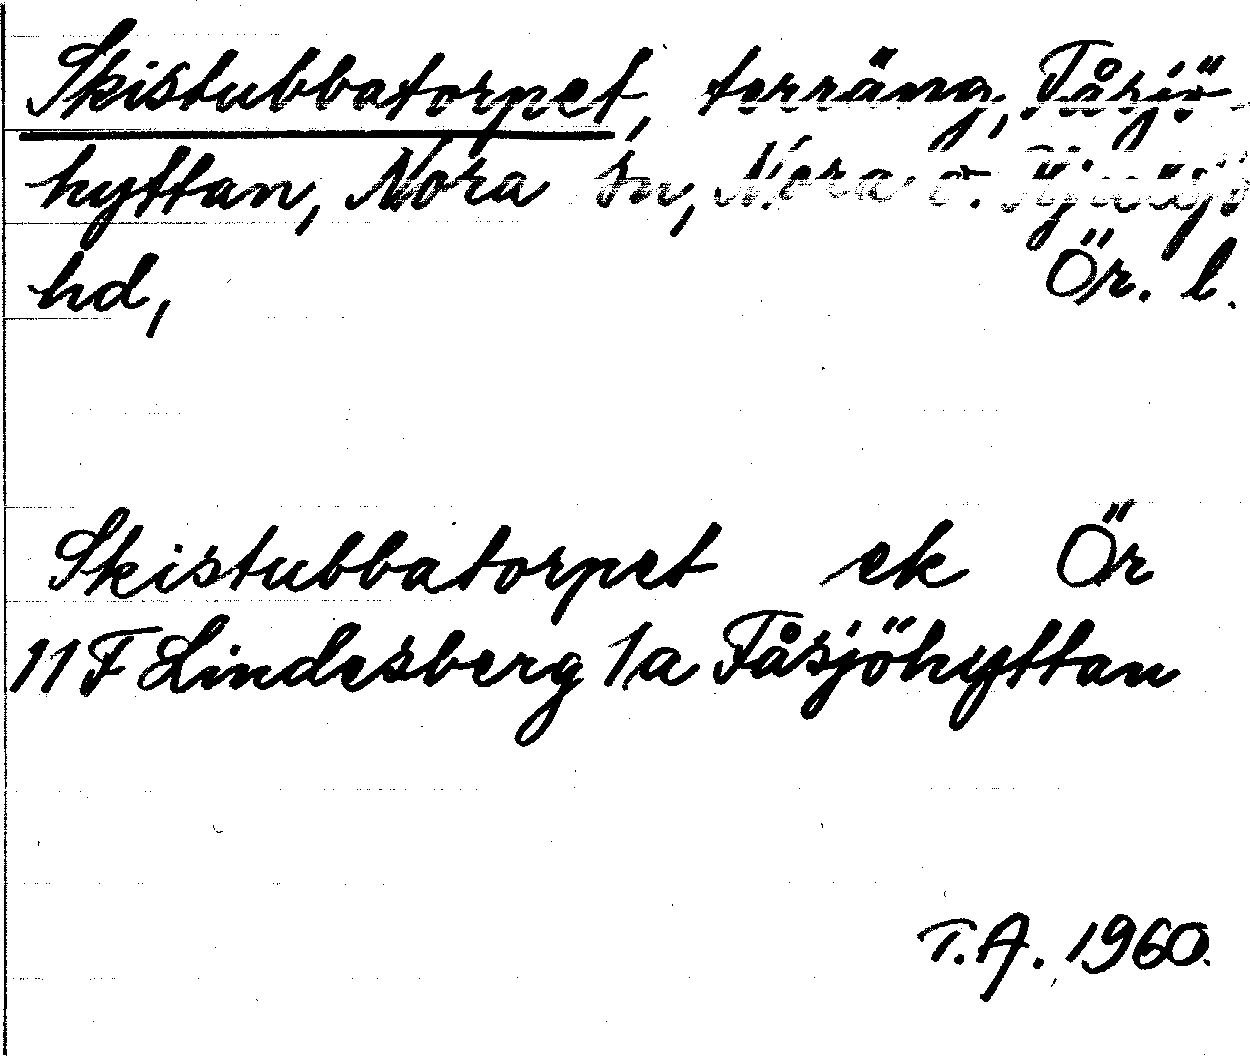 Skistubbatorpet, terräng, Fåsjö-
hyttan, Nora sn, Nora o. Hjulsjö
hd, Ör. l.
Skistubbatorpet ek Ör
11F Lindesberg 1a Fåsjöhyttan
T.A. 1960.